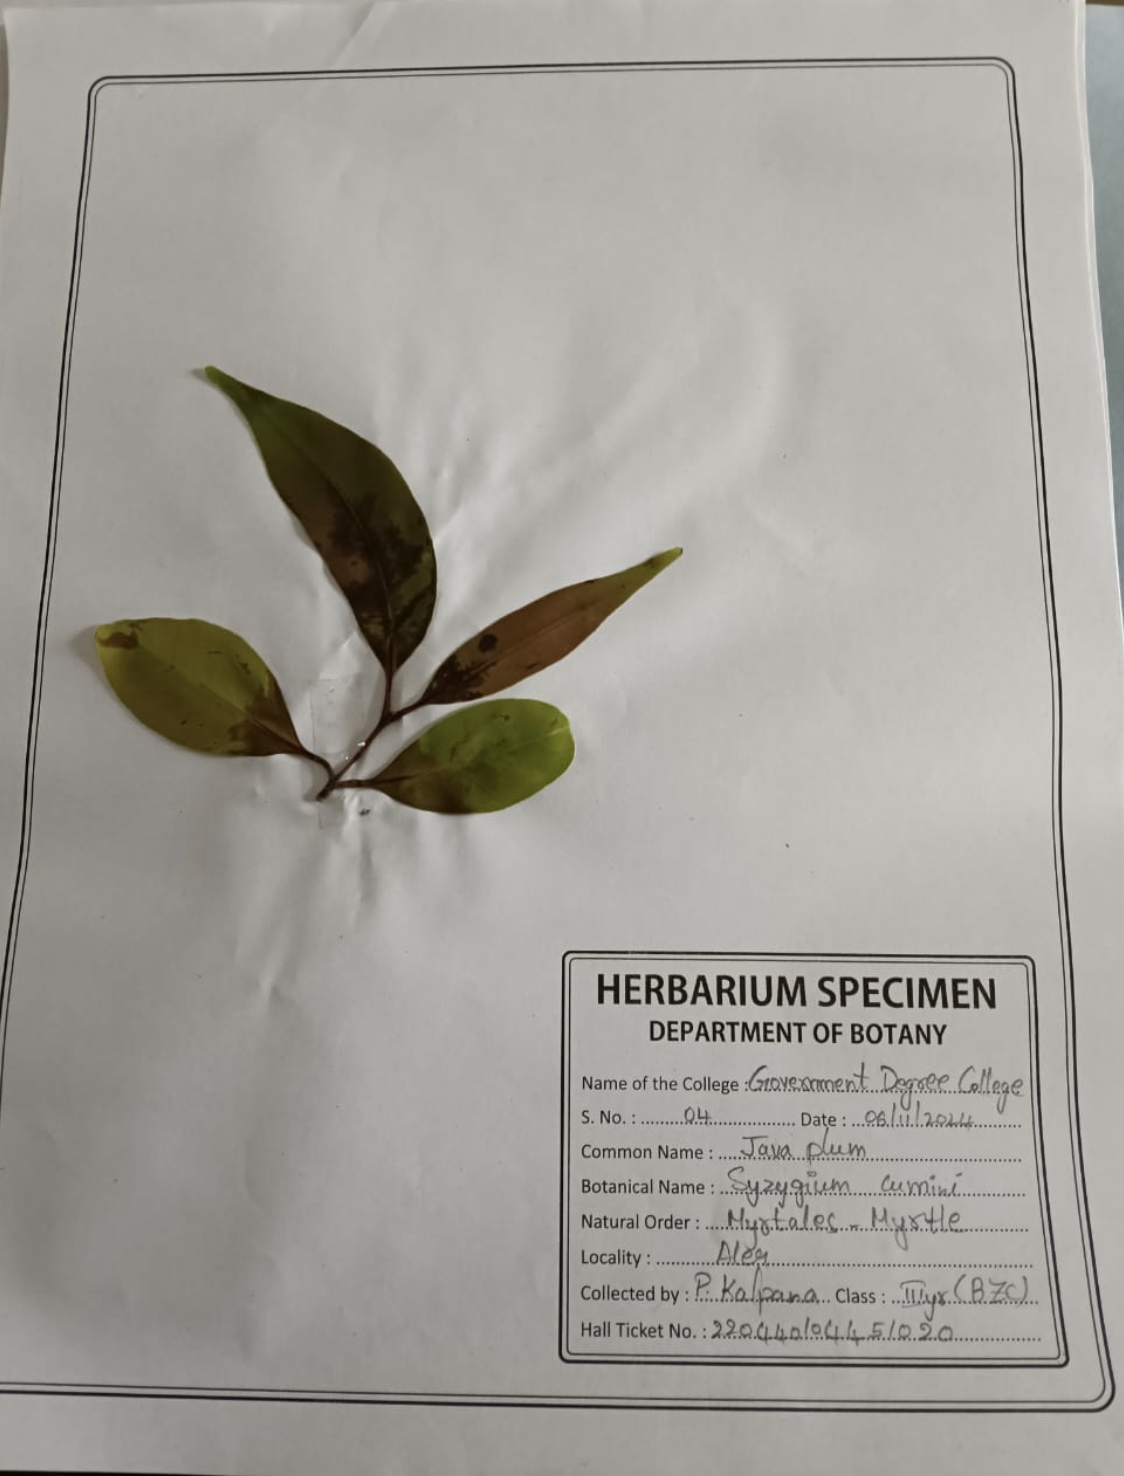 HERBARIUM SPECIMEN
DEPARTMENT OF BOTANY
Name of the College : Government Degree College
S. No. : 04 Date : 06/11/2024
Common Name : Java plum
Botanical Name : Syzygium cumini
Natural Order : Myrtales - Myrtle
Locality :
Collected by : P. Kalpana Class : III yr (BZC)
Hall Ticket No. :